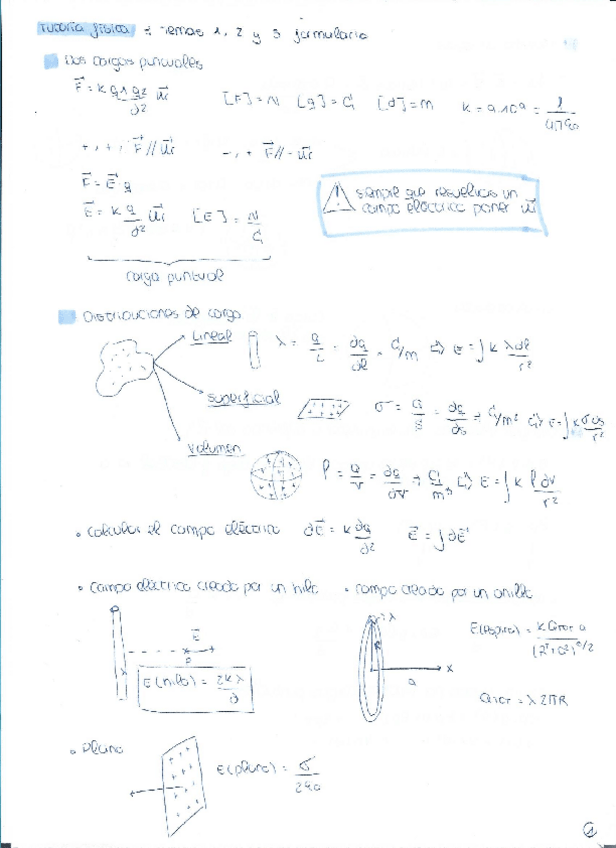 Tutoría física : Temas 1, 2 y 3 formulario
Dos cargas puntuales
F⃗ = k q1 q2 / d² u⃗r   [F] = N   [q] = C   [d] = m   k = 9·10⁹ = 1 / 4πε₀
+ , + , F⃗ // u⃗r   - , + F⃗ // - u⃗r
F⃗ = E⃗ q
E⃗ = k q / d² u⃗r   [E] = N / C
siempre que resuelvas un
campo eléctrico poner u⃗r
carga puntual
Distribuciones de carga
Lineal   λ = Q / L = dq / dl → C/m ⇒ E = ∫ k λ dl / r²
superficial   σ = Q / S = dq / ds → C/m² ⇒ E = ∫ k σ ds / r²
volumen   ρ = Q / V = dq / dV → C / m³ ⇒ E = ∫ k ρ dV / r²
• calcular el campo eléctrico   dE⃗ = k dq / d²   E⃗ = ∫ dE⃗
• campo eléctrico creado por un hilo   • campo creado por un anillo
E⃗
P
λ
E(hilo) = 2kλ / d
λ
R
a
x
E(espira) = k Qtot a / (R² + a²)^3/2
Qtot = λ 2πR
• Plano
E(plano) = σ / 2ε₀
1